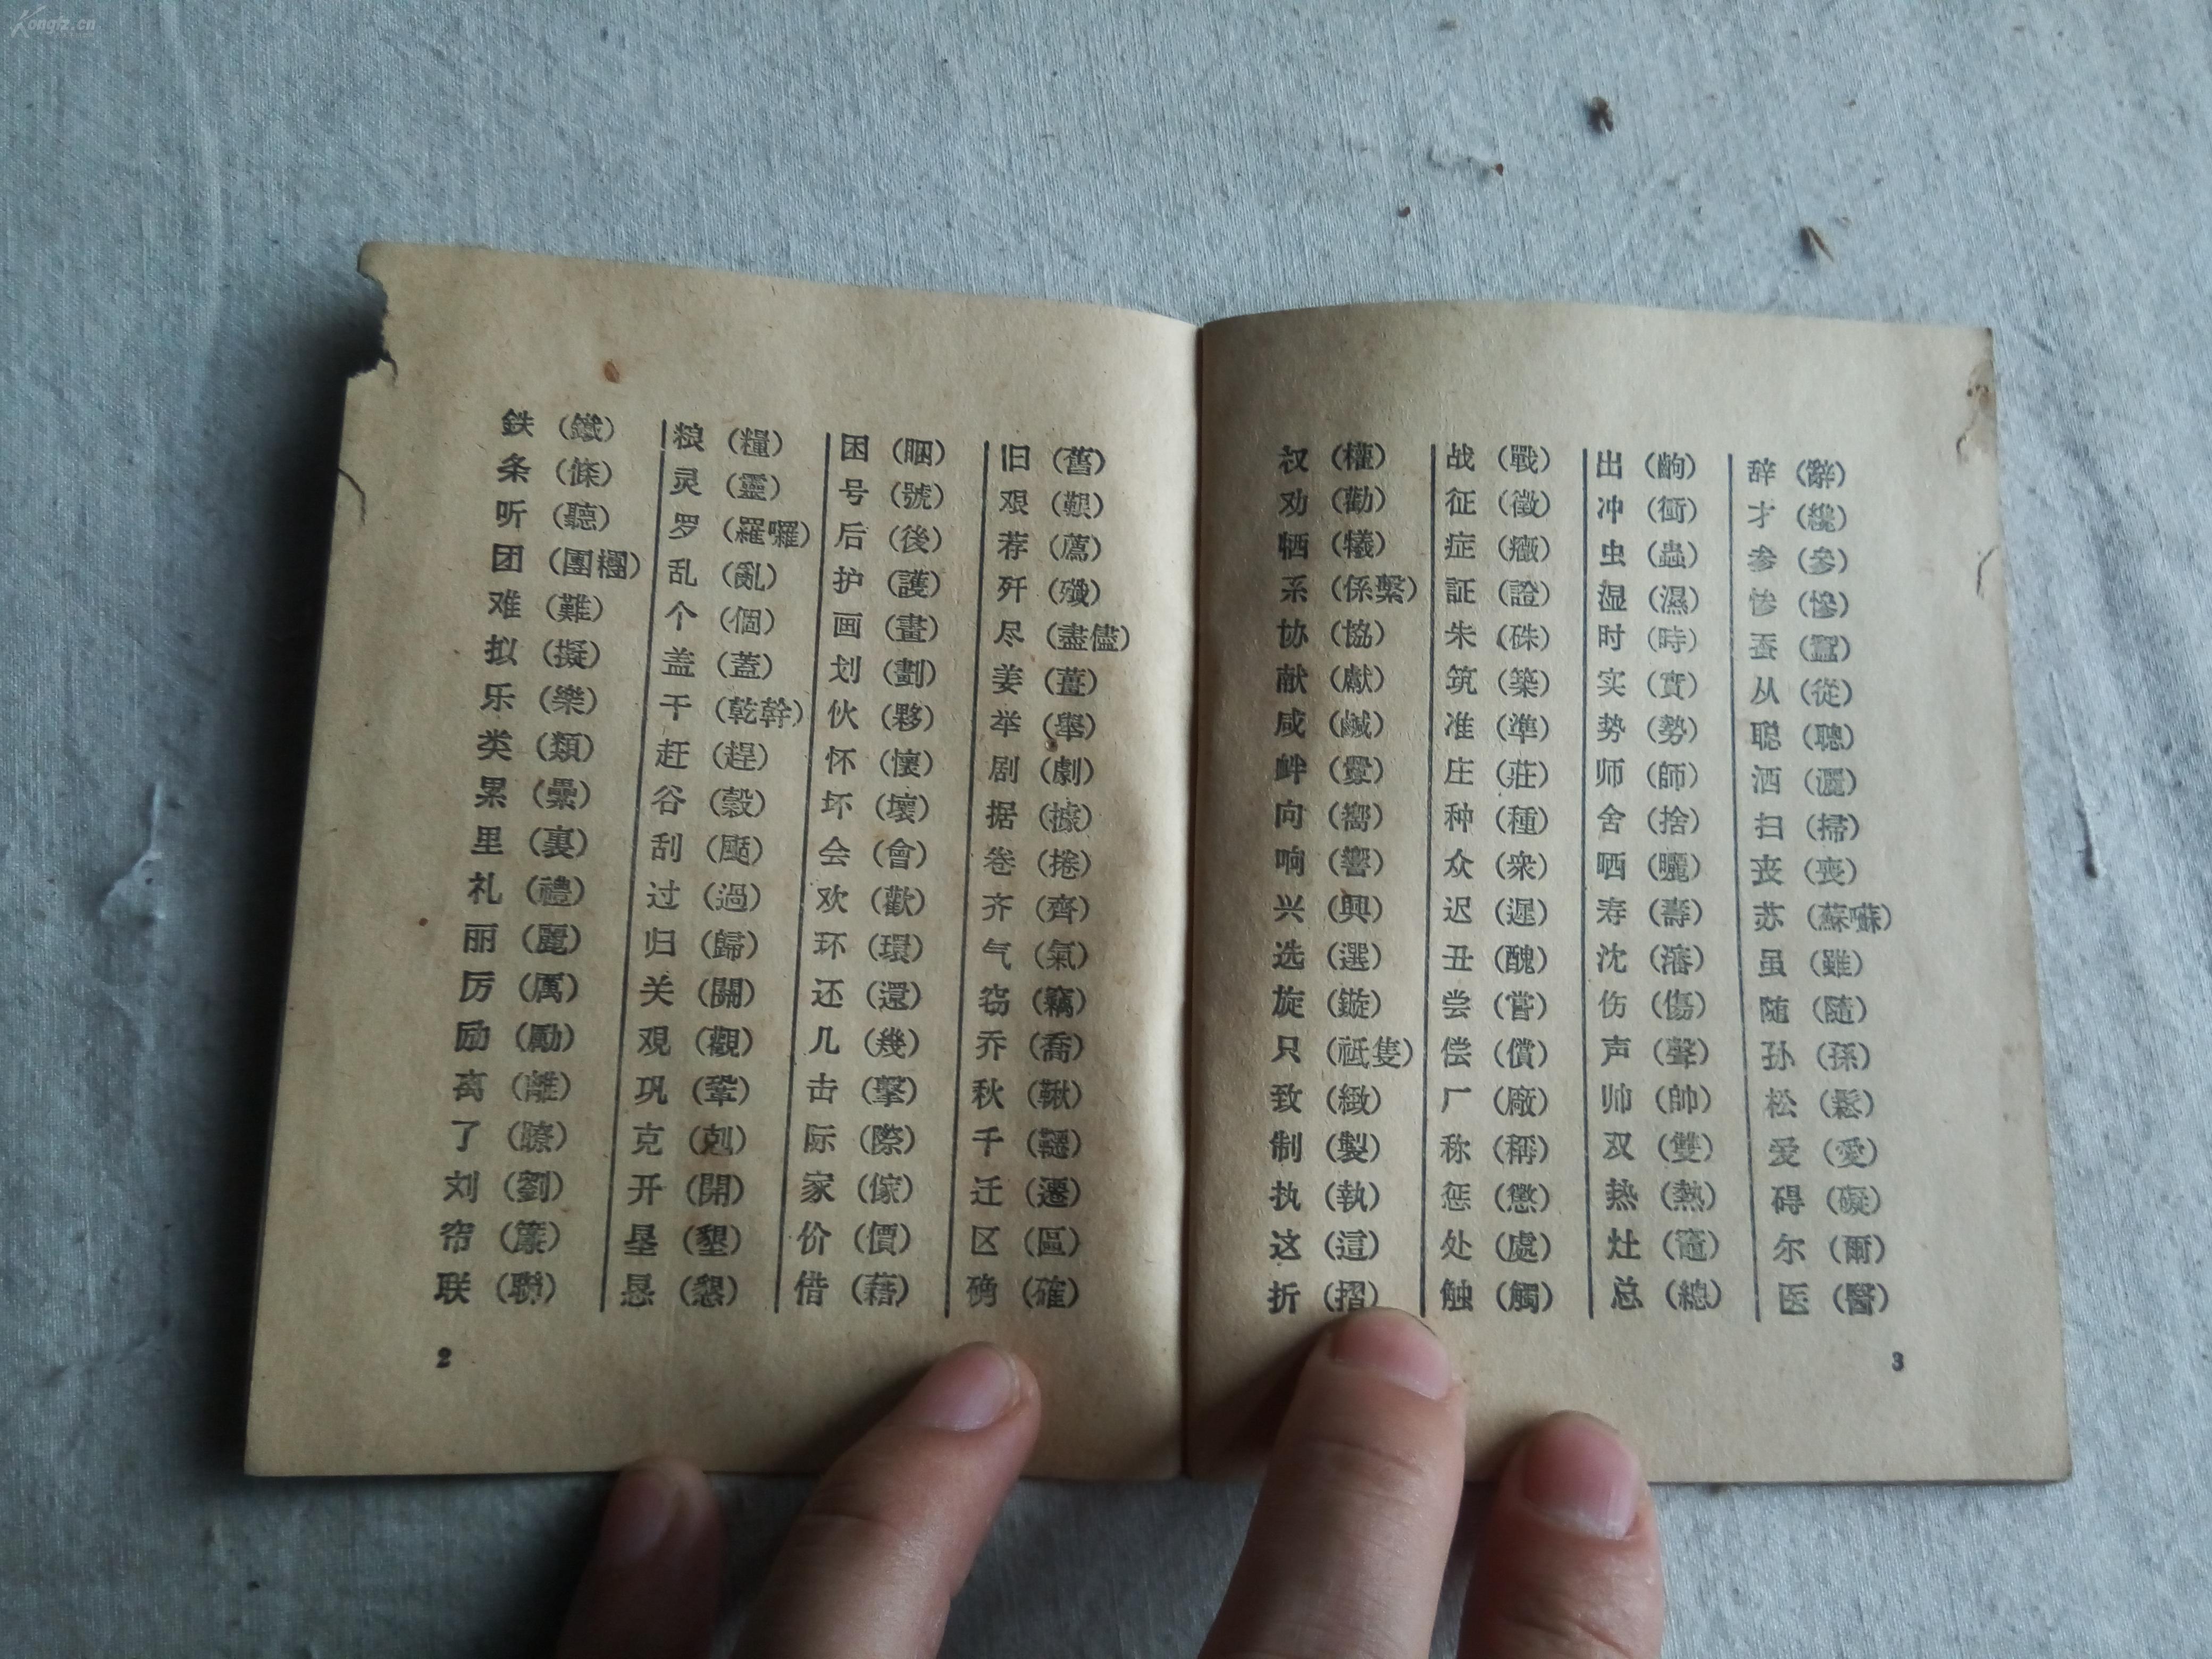 Kongfz.cn
鉄（鐵）
条（條）
听（聽）
团（團糰）
难（難）
拟（擬）
乐（樂）
类（類）
累（纍）
里（裏）
礼（禮）
丽（麗）
厉（厲）
励（勵）
离（離）
了（瞭）
刘（劉）
帘（簾）
联（聯）
粮（糧）
灵（靈）
罗（羅囉）
乱（亂）
个（個）
盖（蓋）
干（乾幹）
赶（趕）
谷（穀）
刮（颳）
过（過）
归（歸）
关（關）
观（觀）
巩（鞏）
克（剋）
开（開）
垦（墾）
恳（懇）
困（睏）
号（號）
后（後）
护（護）
画（畫）
划（劃）
伙（夥）
怀（懷）
坏（壞）
会（會）
欢（歡）
环（環）
还（還）
几（幾）
击（擊）
际（際）
家（傢）
价（價）
借（藉）
旧（舊）
艰（艱）
荐（薦）
歼（殲）
尽（盡儘）
姜（薑）
举（舉）
剧（劇）
据（據）
卷（捲）
齐（齊）
气（氣）
窃（竊）
乔（喬）
秋（鞦）
千（韆）
迁（遷）
区（區）
确（確）
2
权（權）
劝（勸）
牺（犧）
系（係繫）
协（協）
献（獻）
咸（鹹）
衅（釁）
向（嚮）
响（響）
兴（興）
选（選）
旋（鏇）
只（祇隻）
致（緻）
制（製）
执（執）
这（這）
折（摺）
战（戰）
征（徵）
症（癥）
証（證）
朱（硃）
筑（築）
准（準）
庄（莊）
种（種）
众（衆）
迟（遲）
丑（醜）
尝（嘗）
偿（償）
厂（廠）
称（稱）
惩（懲）
处（處）
触（觸）
出（齣）
冲（衝）
虫（蟲）
湿（濕）
时（時）
实（實）
势（勢）
师（師）
舍（捨）
晒（曬）
寿（壽）
沈（瀋）
伤（傷）
声（聲）
帅（帥）
双（雙）
热（熱）
灶（竈）
总（總）
辞（辭）
才（纔）
参（參）
惨（慘）
蚕（蠶）
从（從）
聪（聰）
洒（灑）
扫（掃）
丧（喪）
苏（蘇囌）
虽（雖）
随（隨）
孙（孫）
松（鬆）
爱（愛）
碍（礙）
尔（爾）
医（醫）
3